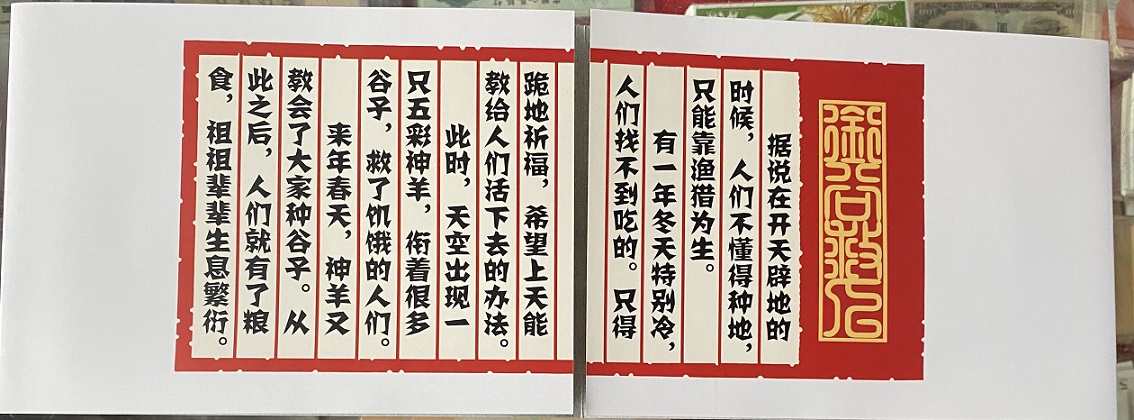 衔谷救人
据说在开天辟地的
时候，人们不懂得种地，
只能靠渔猎为生。
有一年冬天特别冷，
人们找不到吃的。只得
跪地祈福，希望上天能
教给人们活下去的办法。
此时，天空出现一
只五彩神羊，衔着很多
谷子，救了饥饿的人们。
来年春天，神羊又
教会了大家种谷子。从
此之后，人们就有了粮
食，祖祖辈辈生息繁衍。